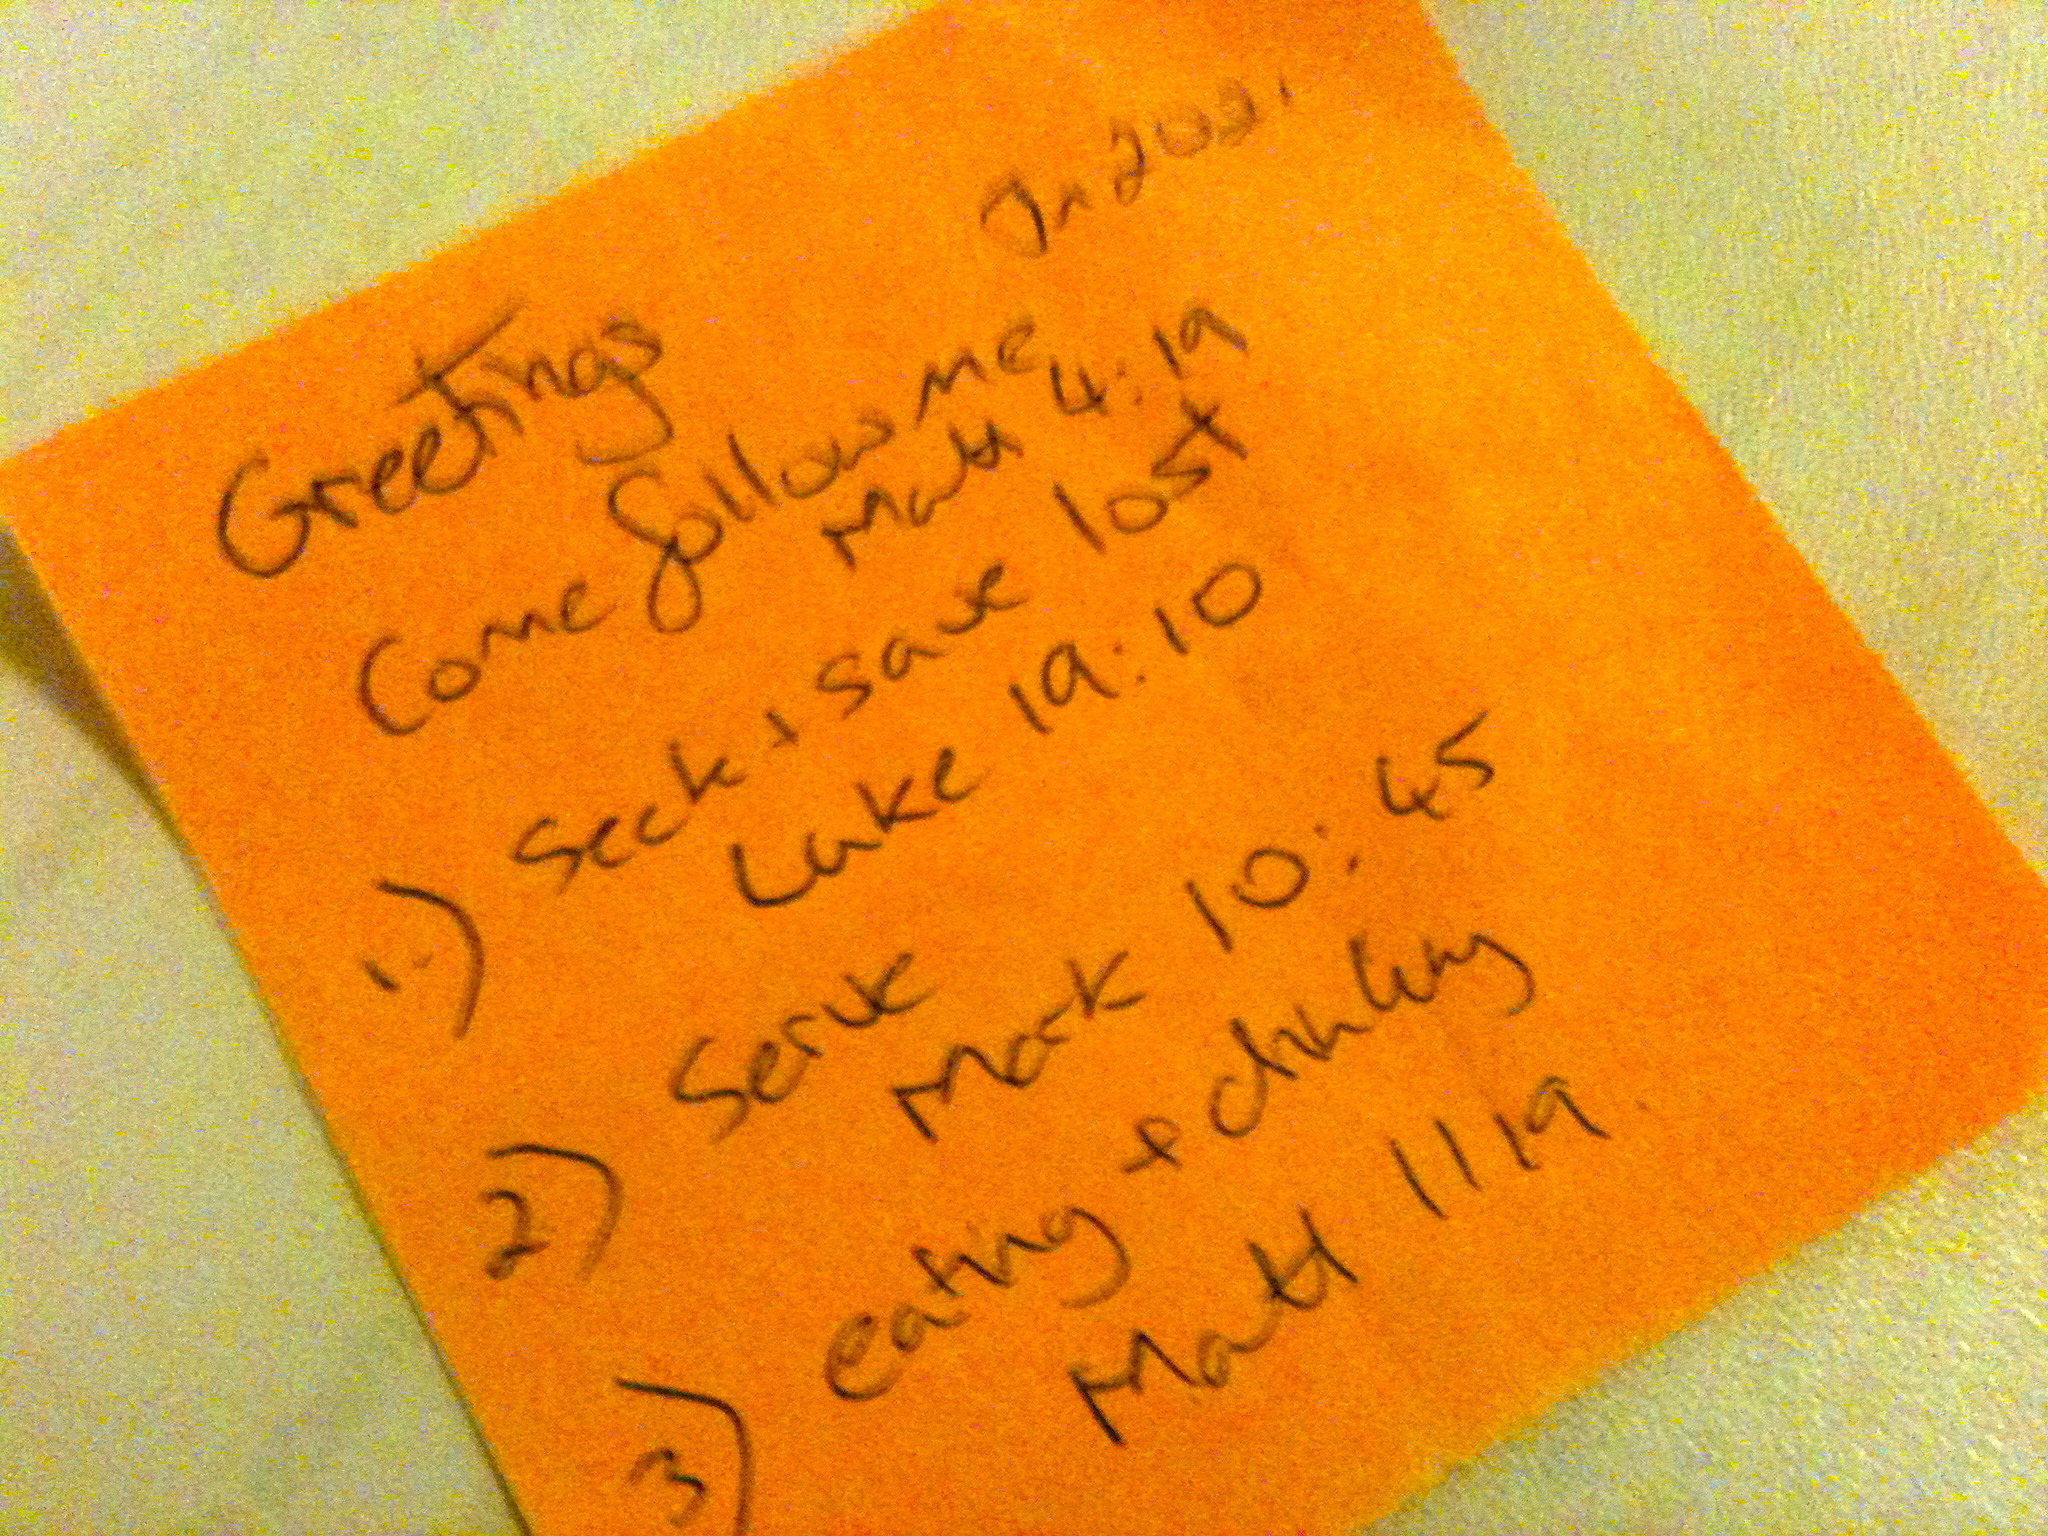 Jn 2021
Greetings
Come follow me
Matt 4:19
1.) Seek + save lost
Luke 19:10
2) Serve
Mark 10:45
3) eating + drinking
Matt 11 19.